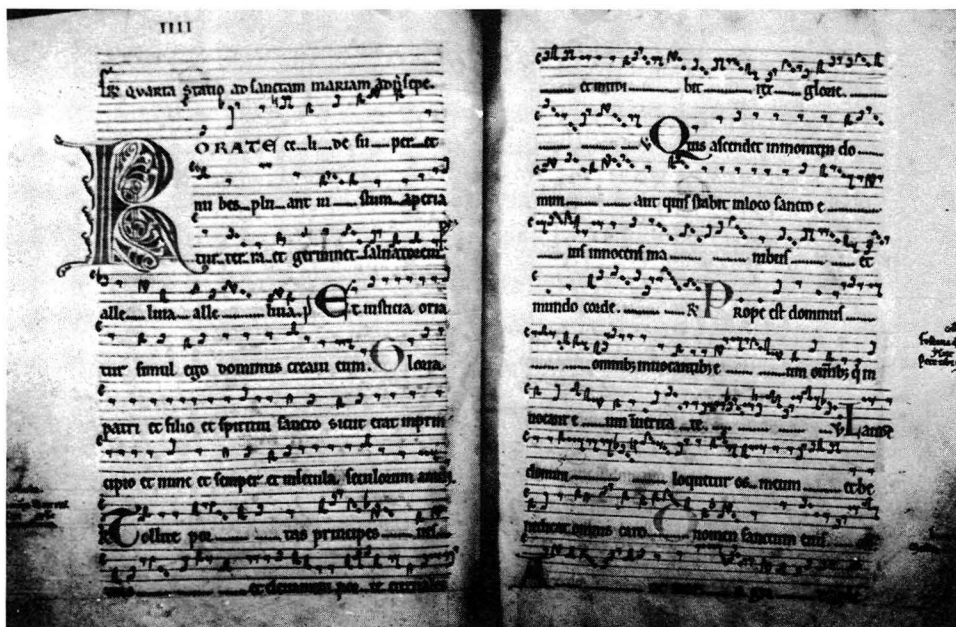 IIII
quarta statio ad sanctam mariam ad psepe.
RORATE ce li de su per et
nu bes plu ant iu stum aperia
tur ter ra et germinet saluatorem
alle luia alle luia. p Et iusticia oria
tur simul ego dominus creaui eum. Gloria
patri et filio et spiritui sancto sicut erat inprin
cipio et nunc et semper et insecula seculorum amen
Tollite por tas principes ues
et eleuamini por te eternales
et introi bit rex glorie.
Quis ascendet inmontem do
mini aut quis stabit inloco sancto e
ius innocens ma nibus et
mundo corde. Prope est dominus
omnibz inuocantibz e um omibz q in
uocant e um inuerita te. Laude
domini loquetur os meum et be
nedicat omnis caro nomen sanctum eius